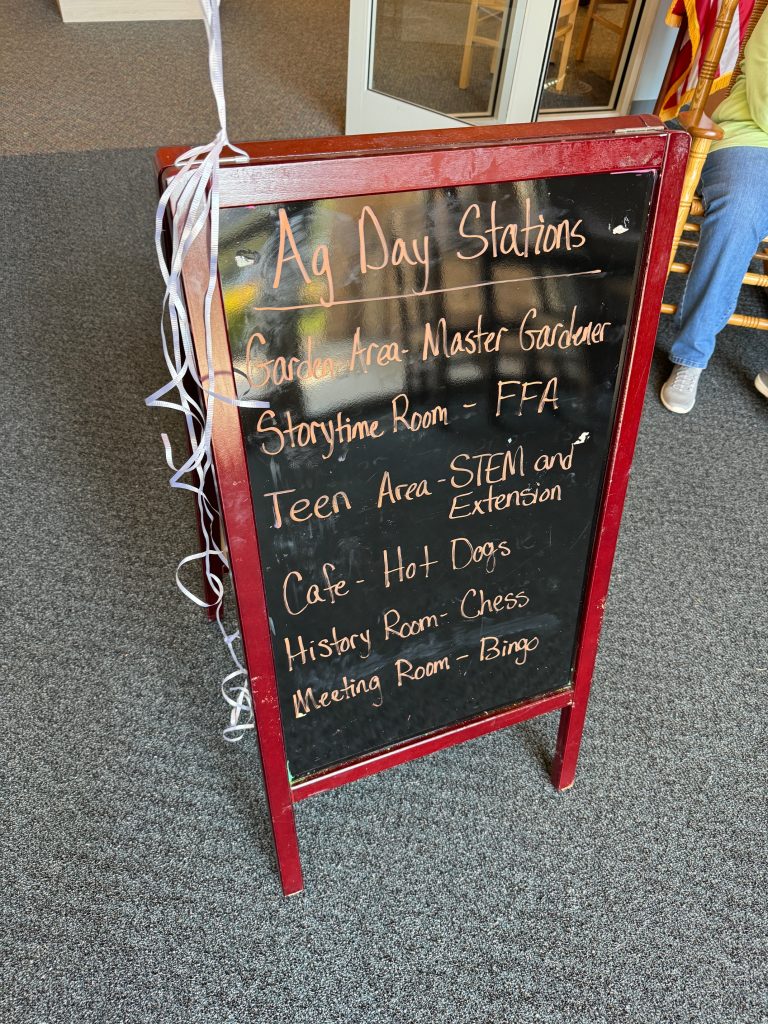 Ag Day Stations
Garden Area - Master Gardener
Storytime Room - FFA
Teen Area - STEM and
Extension
Cafe - Hot Dogs
History Room - Chess
Meeting Room - Bingo